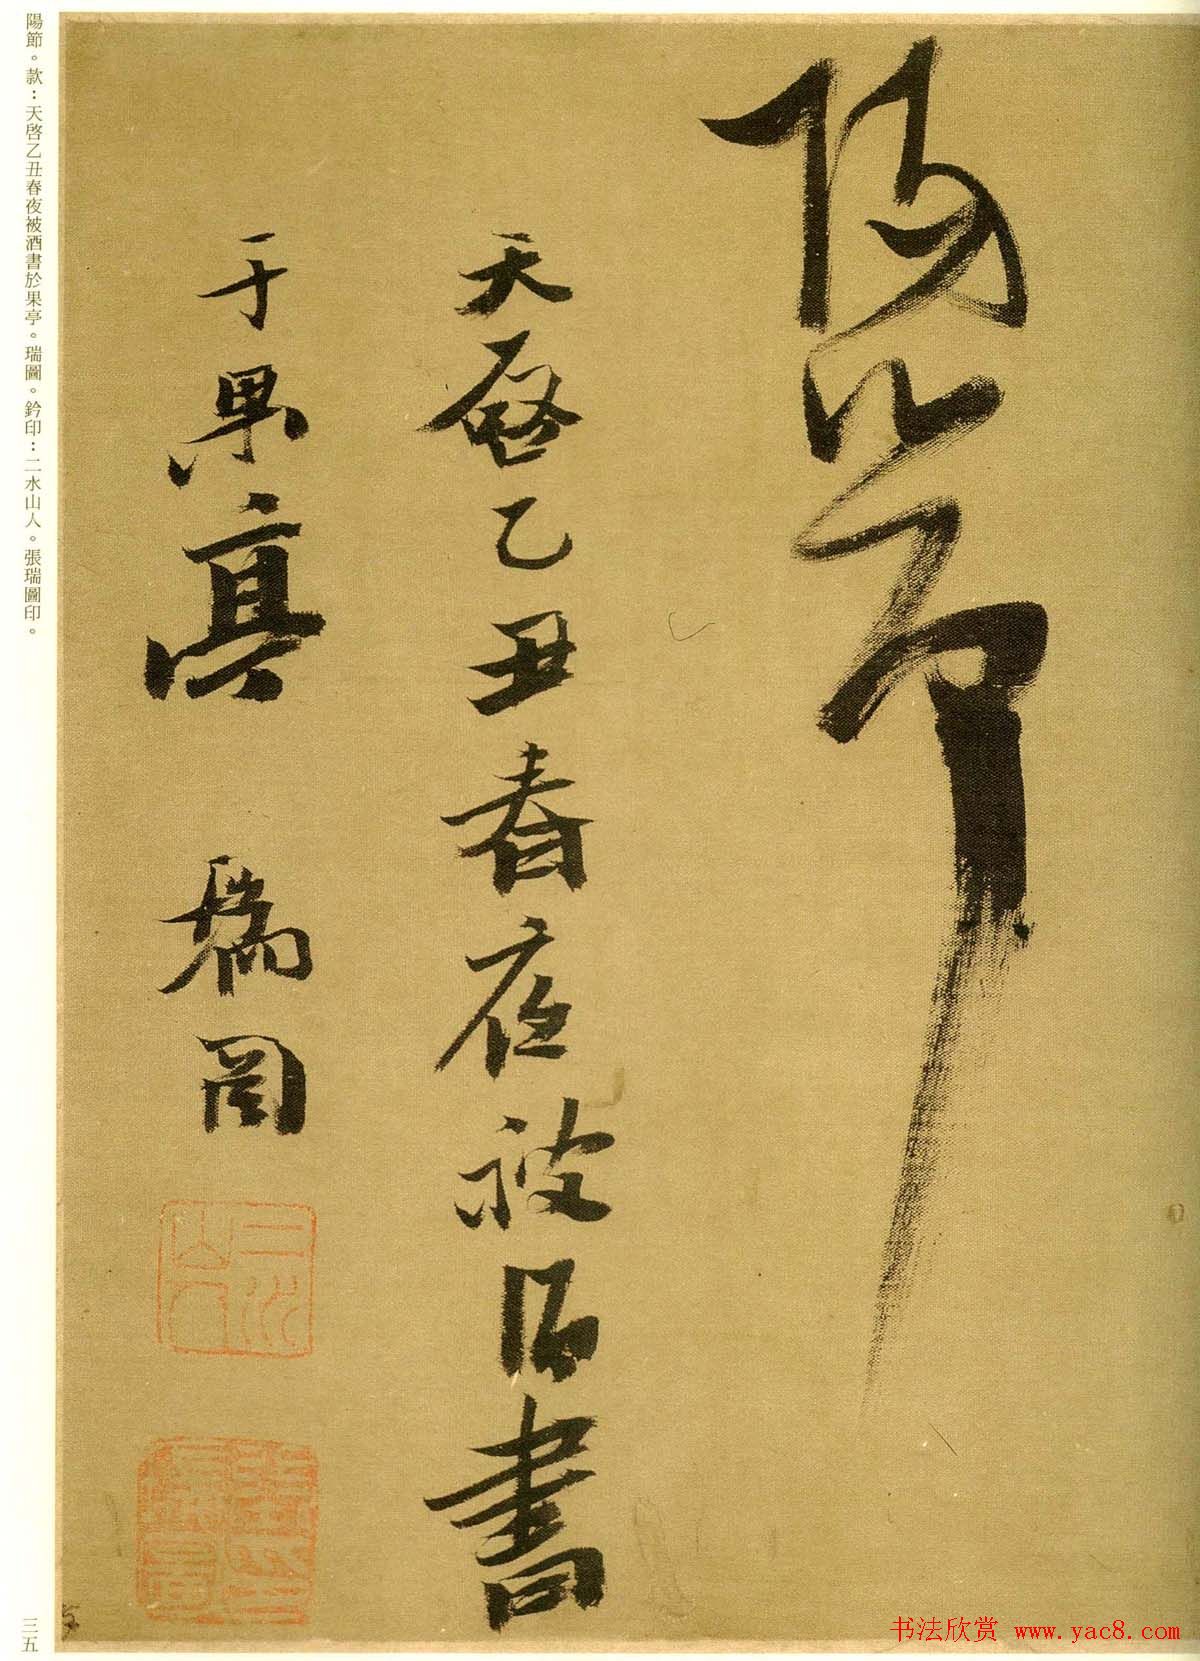 陽節
天啓乙丑春夜被酒書
于果亭 瑞圖
二水山人
張瑞圖印
陽節。款：天啓乙丑春夜被酒書於果亭。瑞圖。鈐印：二水山人。張瑞圖印。
三五
书法欣赏 www.yac8.com